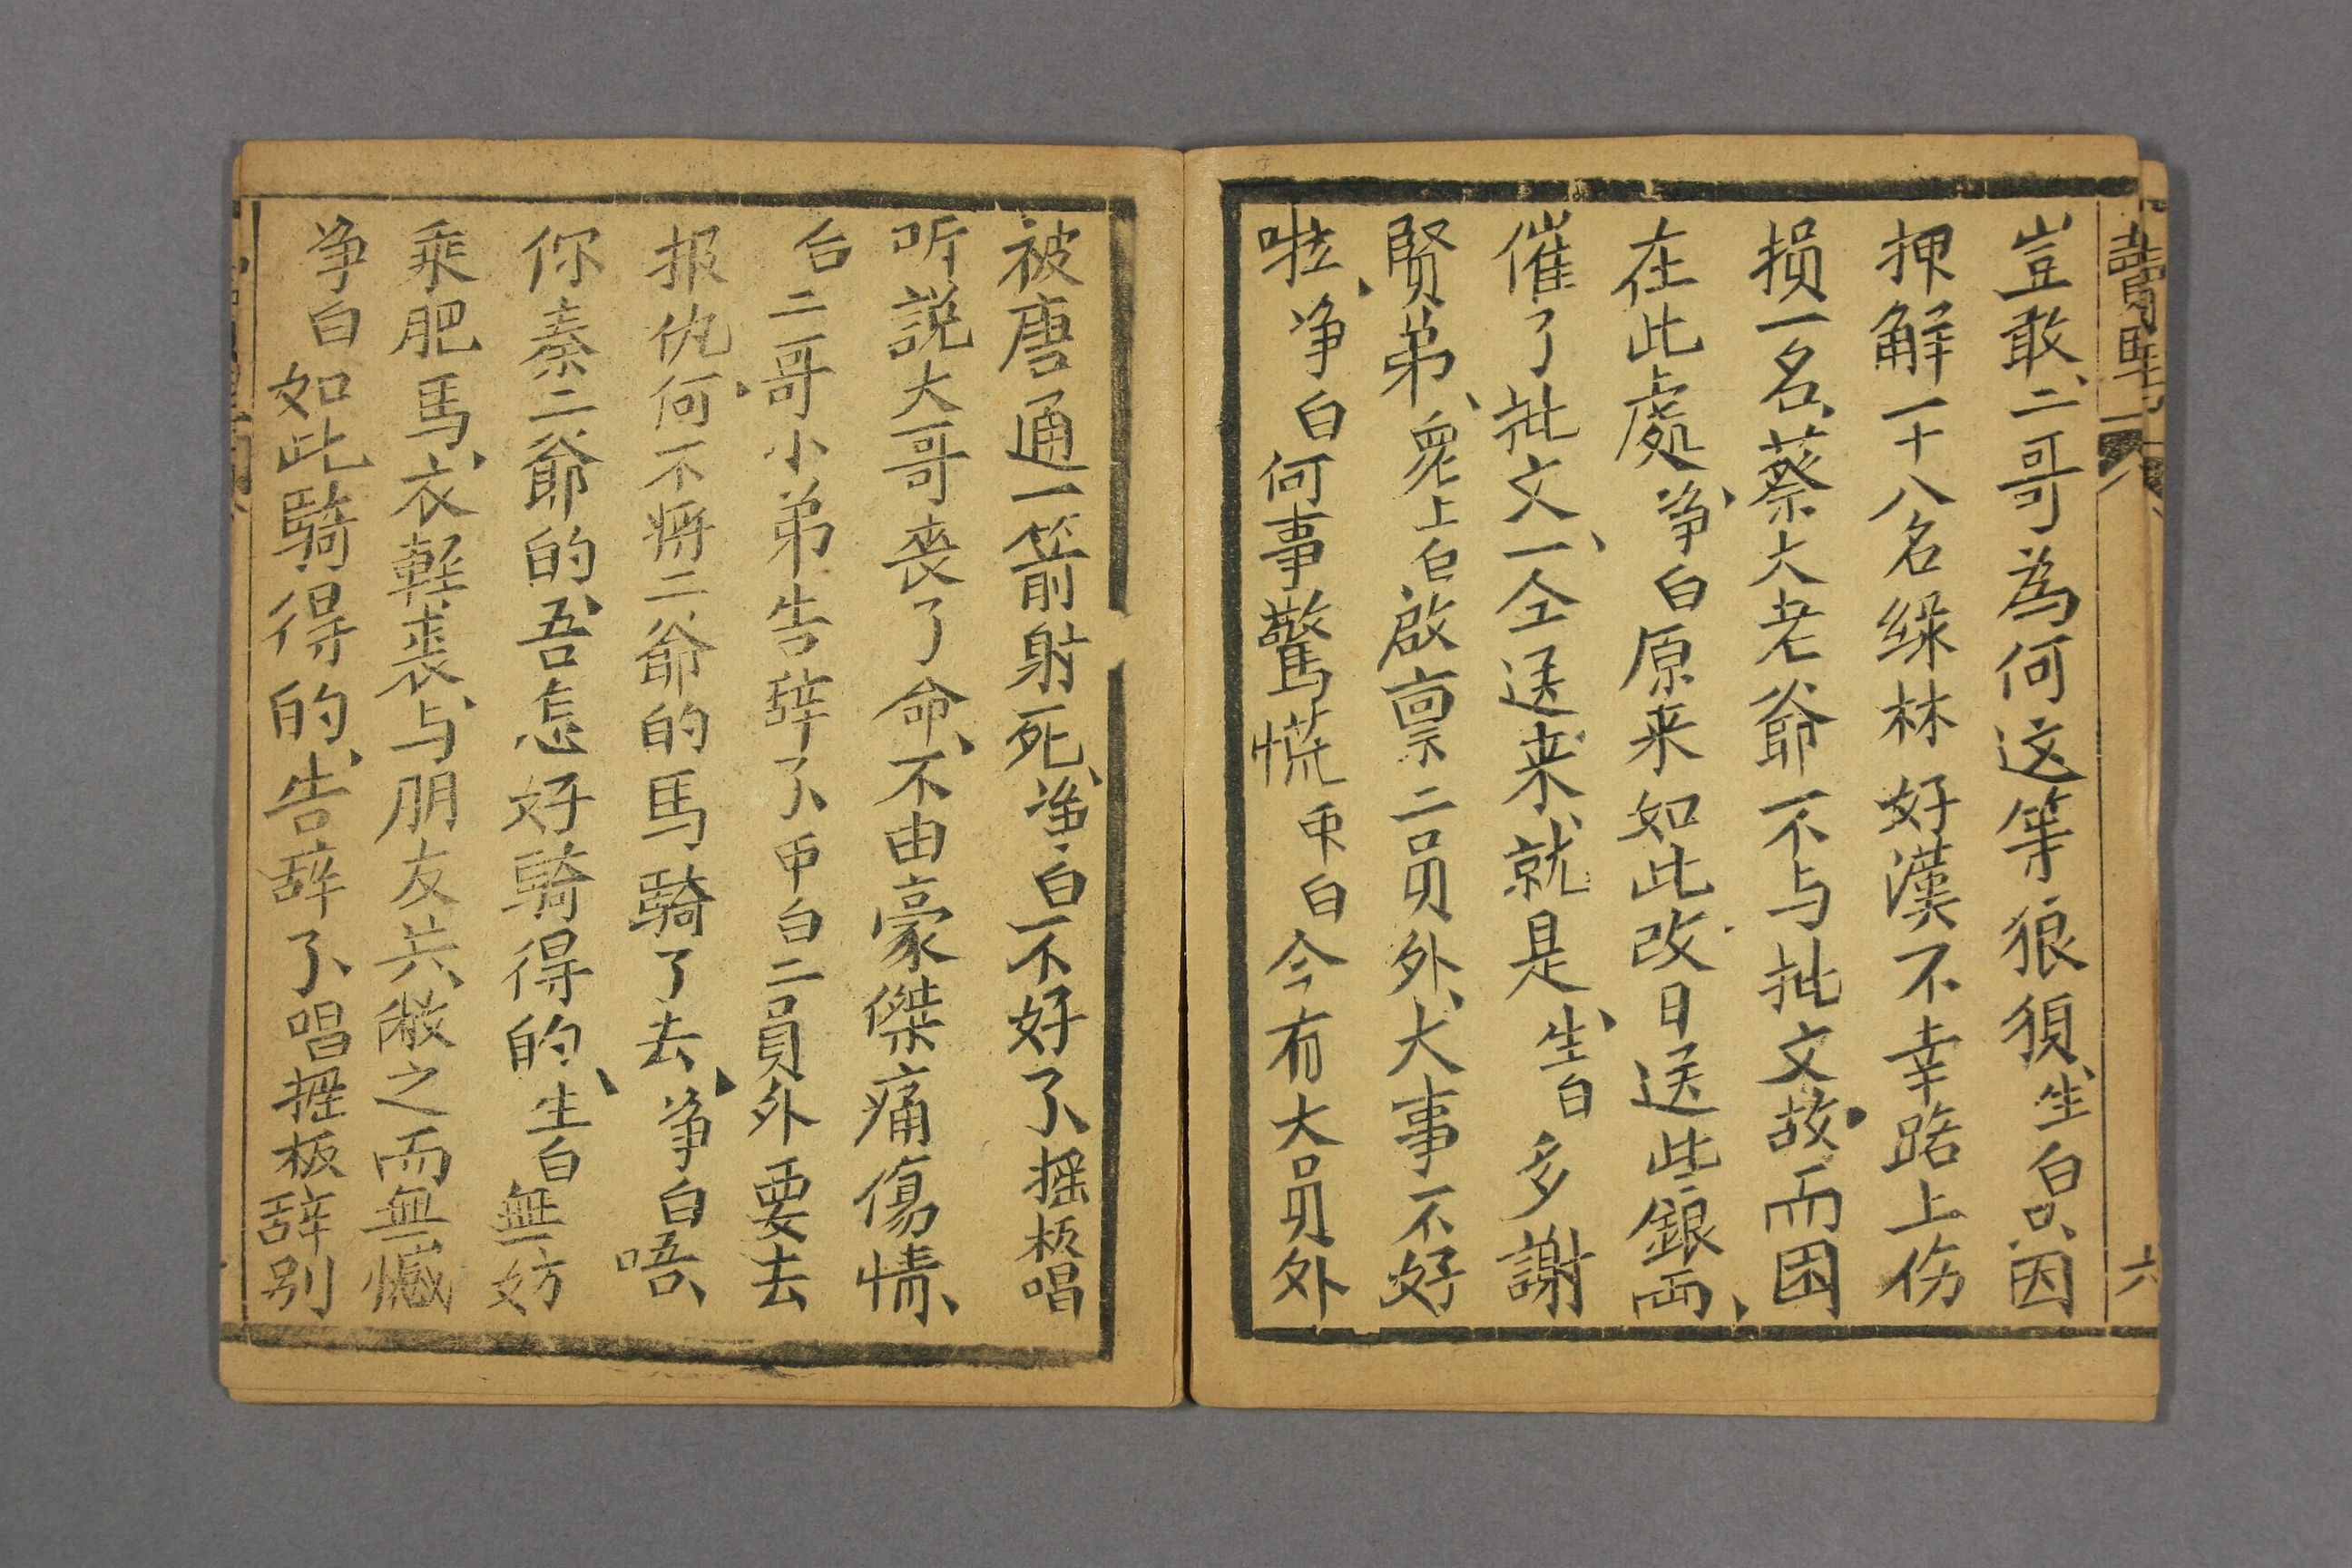 豈敢、二哥為何这等狼狽、生白只因
押解一十八名绿林好漢不幸路上伤
损一名、蔡大老爺不与批文、故而困
在此處、净白原来如此改日送些銀両、
催了批文、一仝送来、就是、生白多謝
賢弟、衆上白啟禀二員外、大事不好
啦、净白何事驚慌卒白今有大員外
被唐通一箭射死、净白不好了、摇板唱
听説大哥丧了命、不由豪傑痛傷情、
台二哥小弟告辞了、卒白二員外要去
报仇何不将二爺的馬騎了去、净白唔、
你秦二爺的、吾怎好騎得的、生白無妨
乘肥馬、衣軽裘、与朋友共、敝之而無憾
净白如此騎得的、告辞了、唱摇板辞别
六